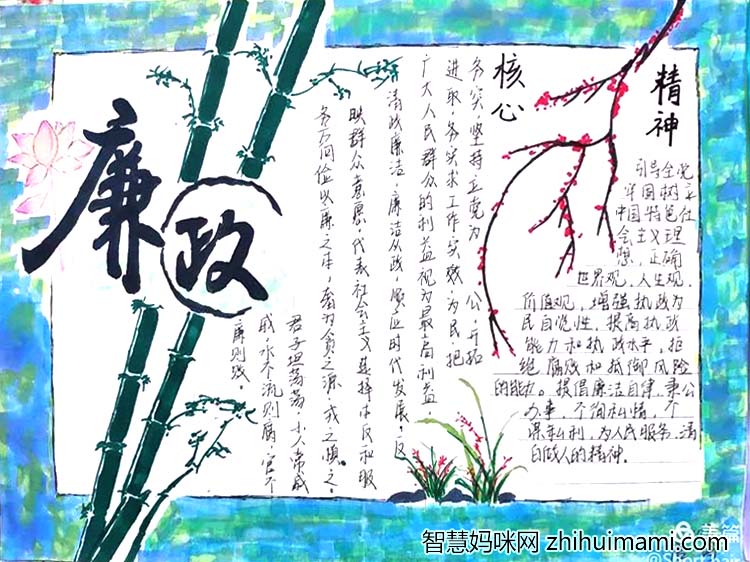 廉
政
核心
务实，坚持立党为公，开拓
进取，务实求工作实效，为民，把
广大人民群众的利益视为最高利益，
清正廉洁，廉洁从政，顺应时代发展，反
映群众意愿，代表社会主义选择体民和服
务
俭以廉之本，奢为贪之源，戒之慎之。
君子坦荡荡，小人常戚
戚，水不流则腐，官不
廉则败。
精神
引导全党
牢固树立
中国特色社
会主义理
想，正确
世界观，人生观，
价值观，增强执政为
民自觉性，提高执政
能力和执政水平，拒
绝腐败和抵御风险
的能力。提倡廉洁自律，秉公
办事，不徇私情，不
谋私利，为人民服务，清
白做人的精神。
美篇
智慧妈咪网 zhihuimami.com
@Short hair